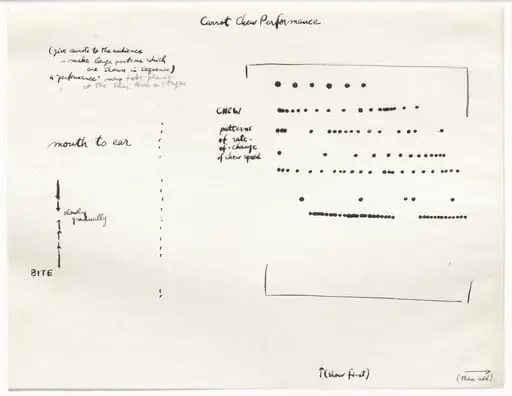 Carrot Chew Performance
(give carrots to the audience
- make large patterns which
are shown in sequence)
a "performance" may take place
at the same time on stages
CHEW
patterns
of rate-
of-change
of chew speed
mouth to ear
slowly
gradually
BITE
↑(show first)
(then add)